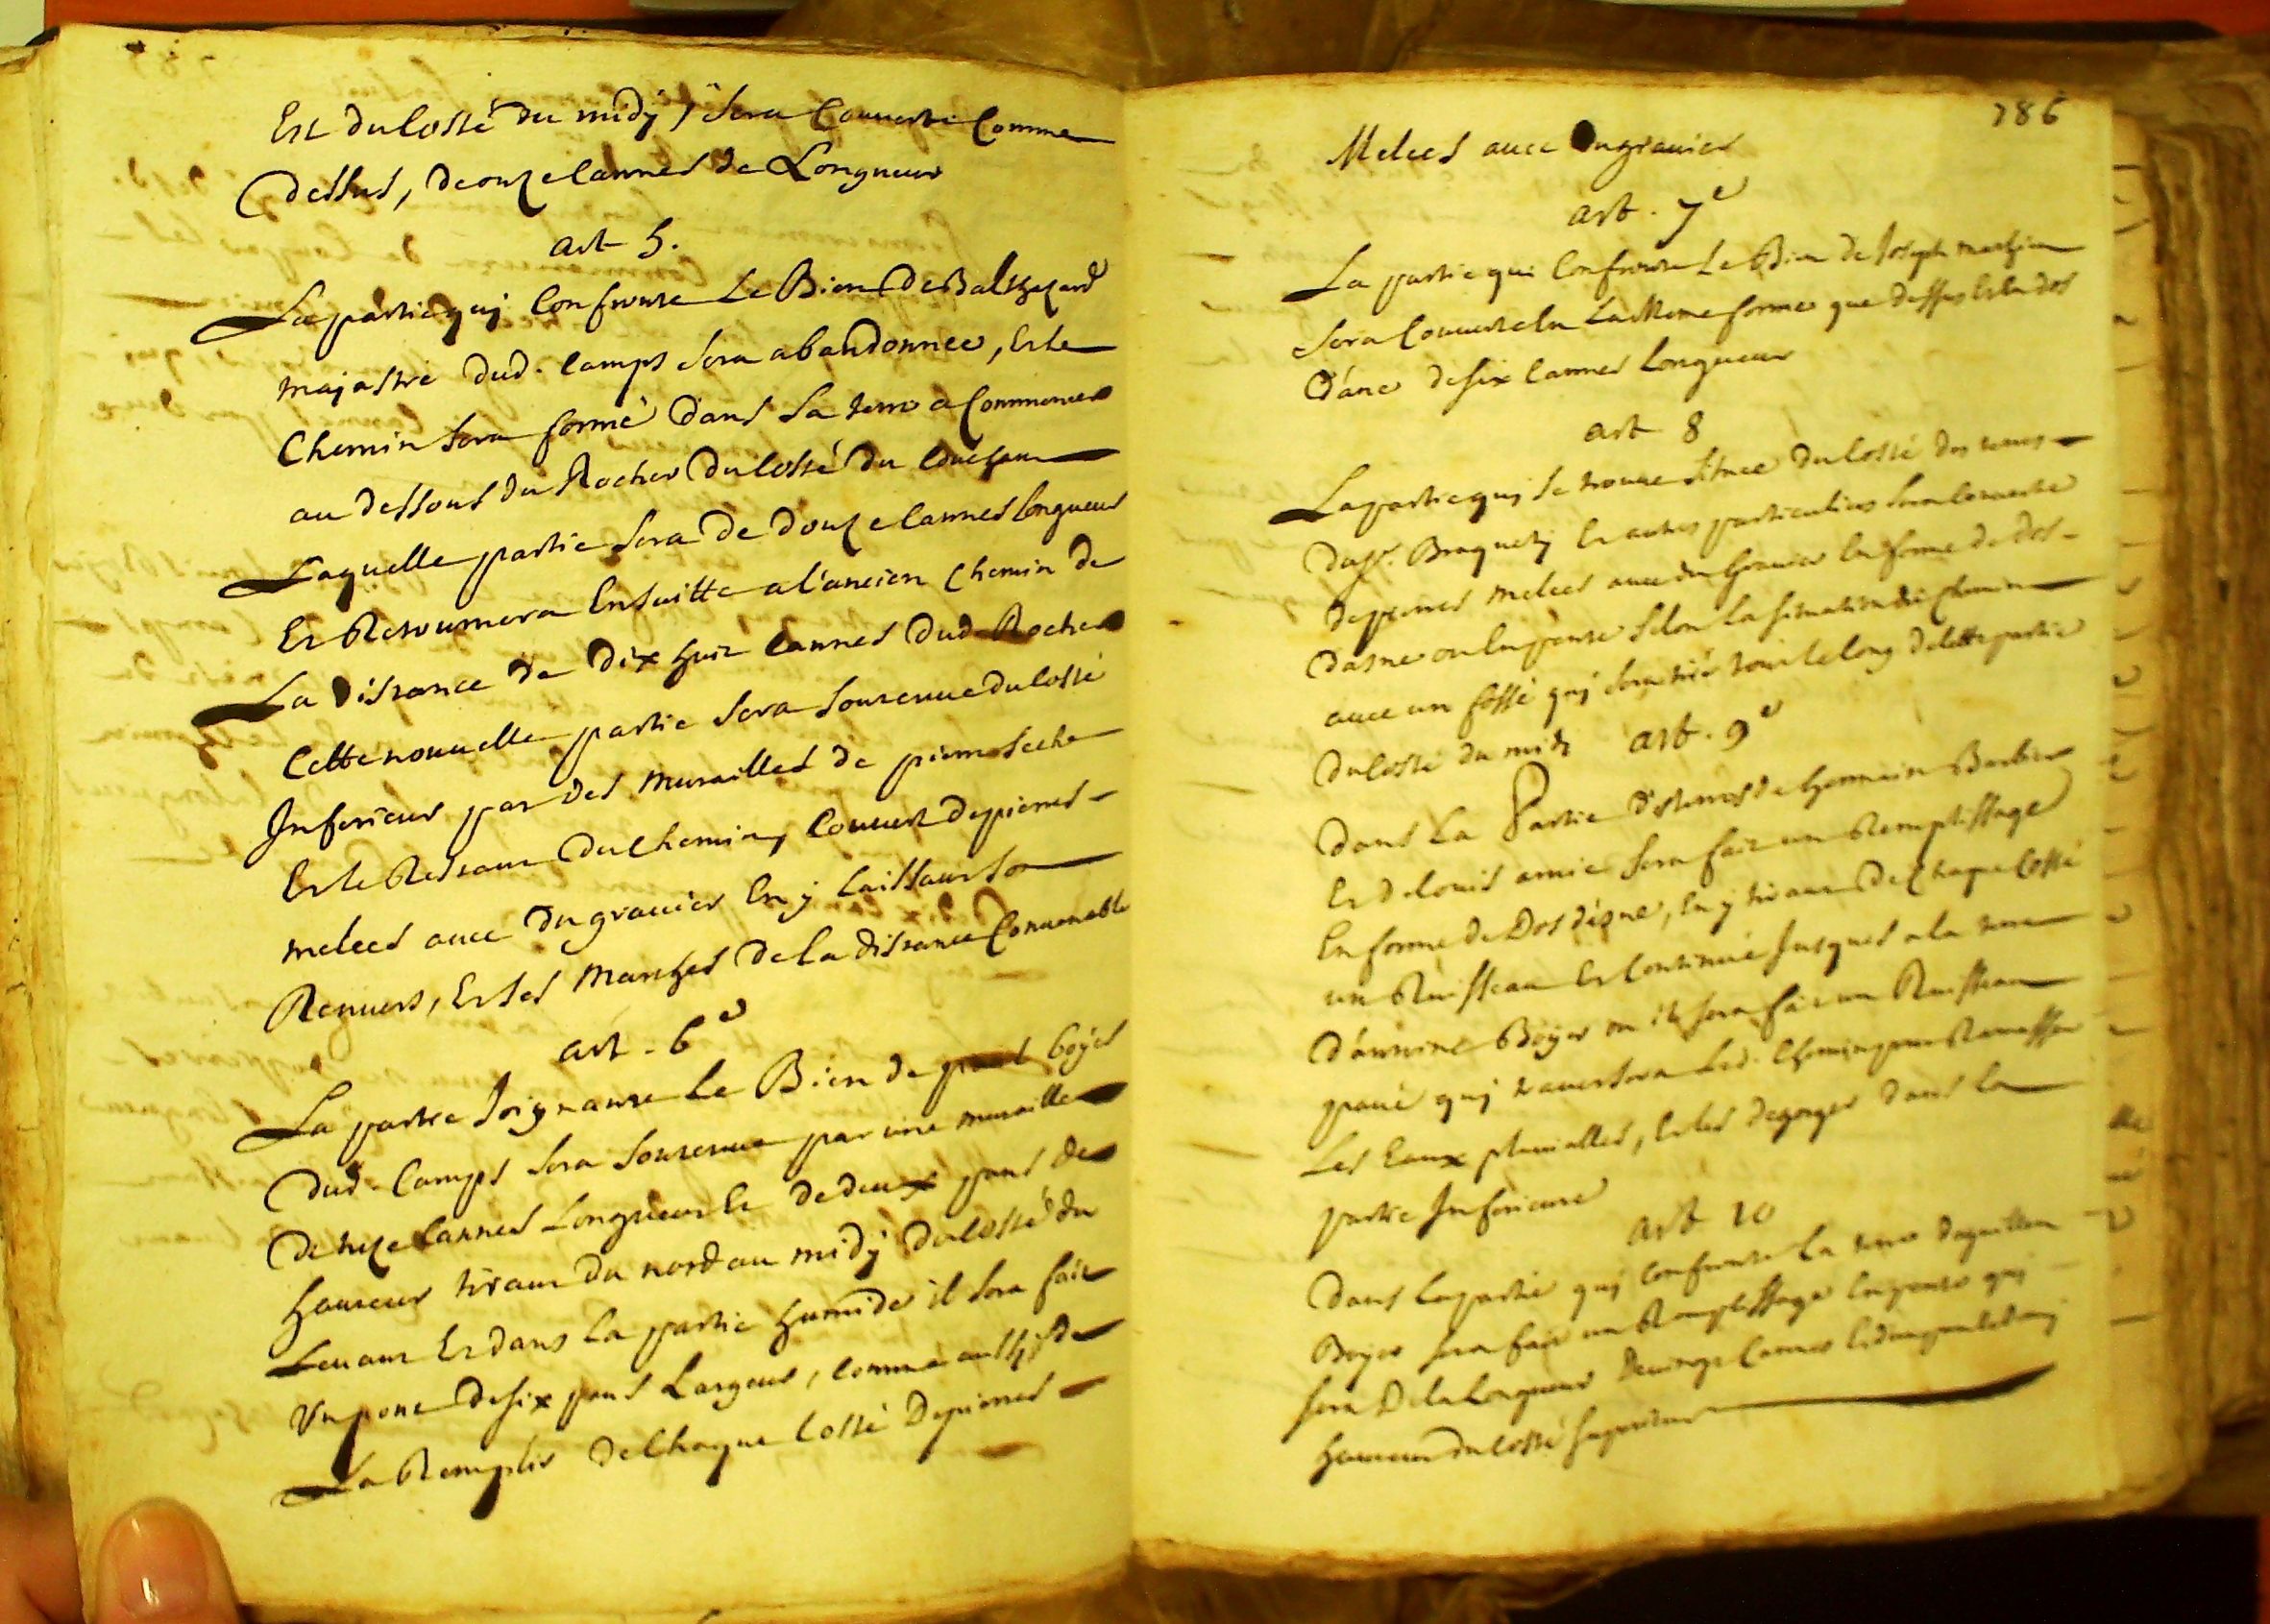 Est du Costé du midy, sera Couverte Comme
dessus, de onze Cannes de Longueur
art 5.
La partie quj Confronte Le Bien De Balthezard
majastre dud. Camps sera abandonnee, Et le
Chemin sera formé dans sa terre a Commencer
au dessous du Rocher du Costé du Couchant
Laquelle partie sera de douze Cannes Longueur
Et Retournera Ensuitte a l'ancien Chemin de
La distance de dix huit Cannes dud Rocher
Cette nouvelle partie sera soutenue du Costé
Inferieur par des Murailles de pierre seche
Et le Restant du Chemin, Couvert de pierres
melees avec du gravier En y Laissant son
Renvers, Et ses Marches de la distance Convenable
art. 6e
La partie Joignante Le Bien de paul boyer
dud. Camps sera soutenue par une muraille
de treze Cannes Longueur Et de deux pans de
hauteur tirant du nord au midy du Costé du
Levant Et dans la partie humide il sera fait
Un pont de six pans Largeur, Comme aussy de
La Remplir de Chaque Costé De pierres
786
Melees avec du gravier
art. 7e
La partie qui Confronte Le Bien de Joseph
sera Couverte En La Meme forme que dessus En dos
d'ane de six Cannes Longueur
art 8
La partie quj se trouve située du Costé des terres
du Sr. Braquety Et autres particuliers sera Couverte
de pierres melees avec du Gravier En forme de dos
d'asne ou En pente selon La situation du Chemin
avec un fossé quj sera tiré tout le long de Cette partie
du Costé du midy art. 9e
Dans La Partie des terres de Germain Barbier
Et de Louis amic sera fait un Remplissage
En forme de Dos d'asne, En y tirant de Chaque Costé
un Ruisseau Et Continué Jusques a la terre
d'antoine Boyer ou il sera fait un Ruisseau
pavé quj traversera Led. Chemin pour Ramasser
Les Eaux pluvialles, Et les degorger dans la
partie Inferieure
art 10
Dans la partie quj Confronte La terre
Boyer sera fait un Remplissage En pente quj
sera De la Longueur de vingt Cannes
hauteur du Costé superieur